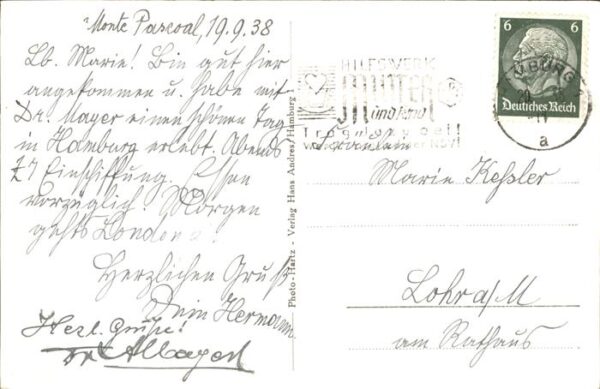 Monte Pascoal, 19.9.38
Lb. Marie! Bin gut hier
angekommen u. habe mit
Dr. Mayer einen schönen Tag
in Hamburg erlebt. Abends
Einschiffung. Essen
vorzüglich! Morgen
gehts London a!
Herzlichen Gruß
Dein Hermann
Herzl. Grüße!
Photo-Hartz - Verlag Hans Andres, Hamburg 1
HILFSWERK
MUTTER
und Kind
NSV!
6 6
Deutsches Reich
MBURG
a
Fräulein
Marie Kessler
Lohr a/M
am Rathaus